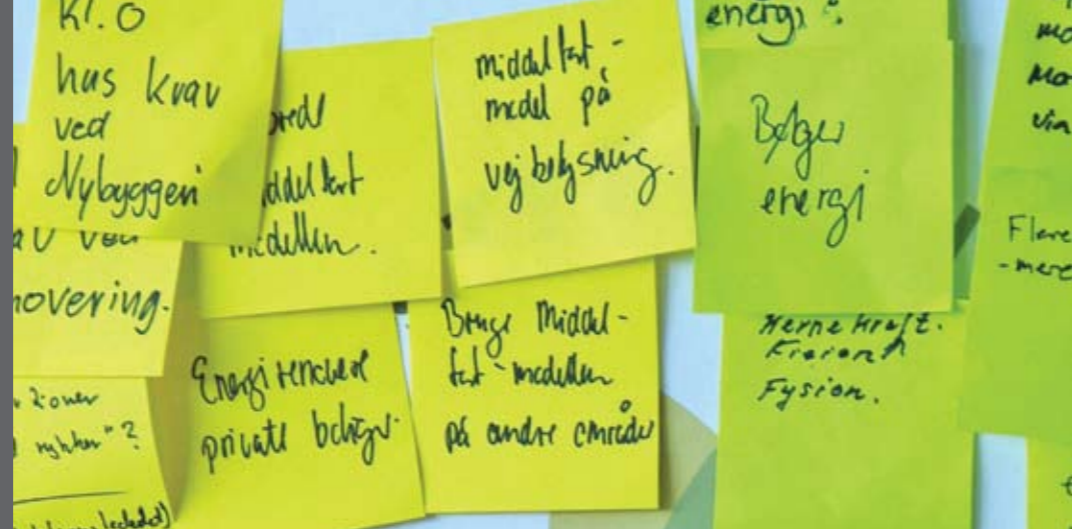 Kl. 0
hus krav
ved
Nybyggeri
ved
novering.
zoner
?
bredt
middelfart
modellen.
Energirenovere
private boliger
middelfart-
model på
vejbelysning.
Bruge Middel-
fart-modellen
på andre områder
energi
Bølger
energi
Kernekraft.
Fysion.
Flere
-mere